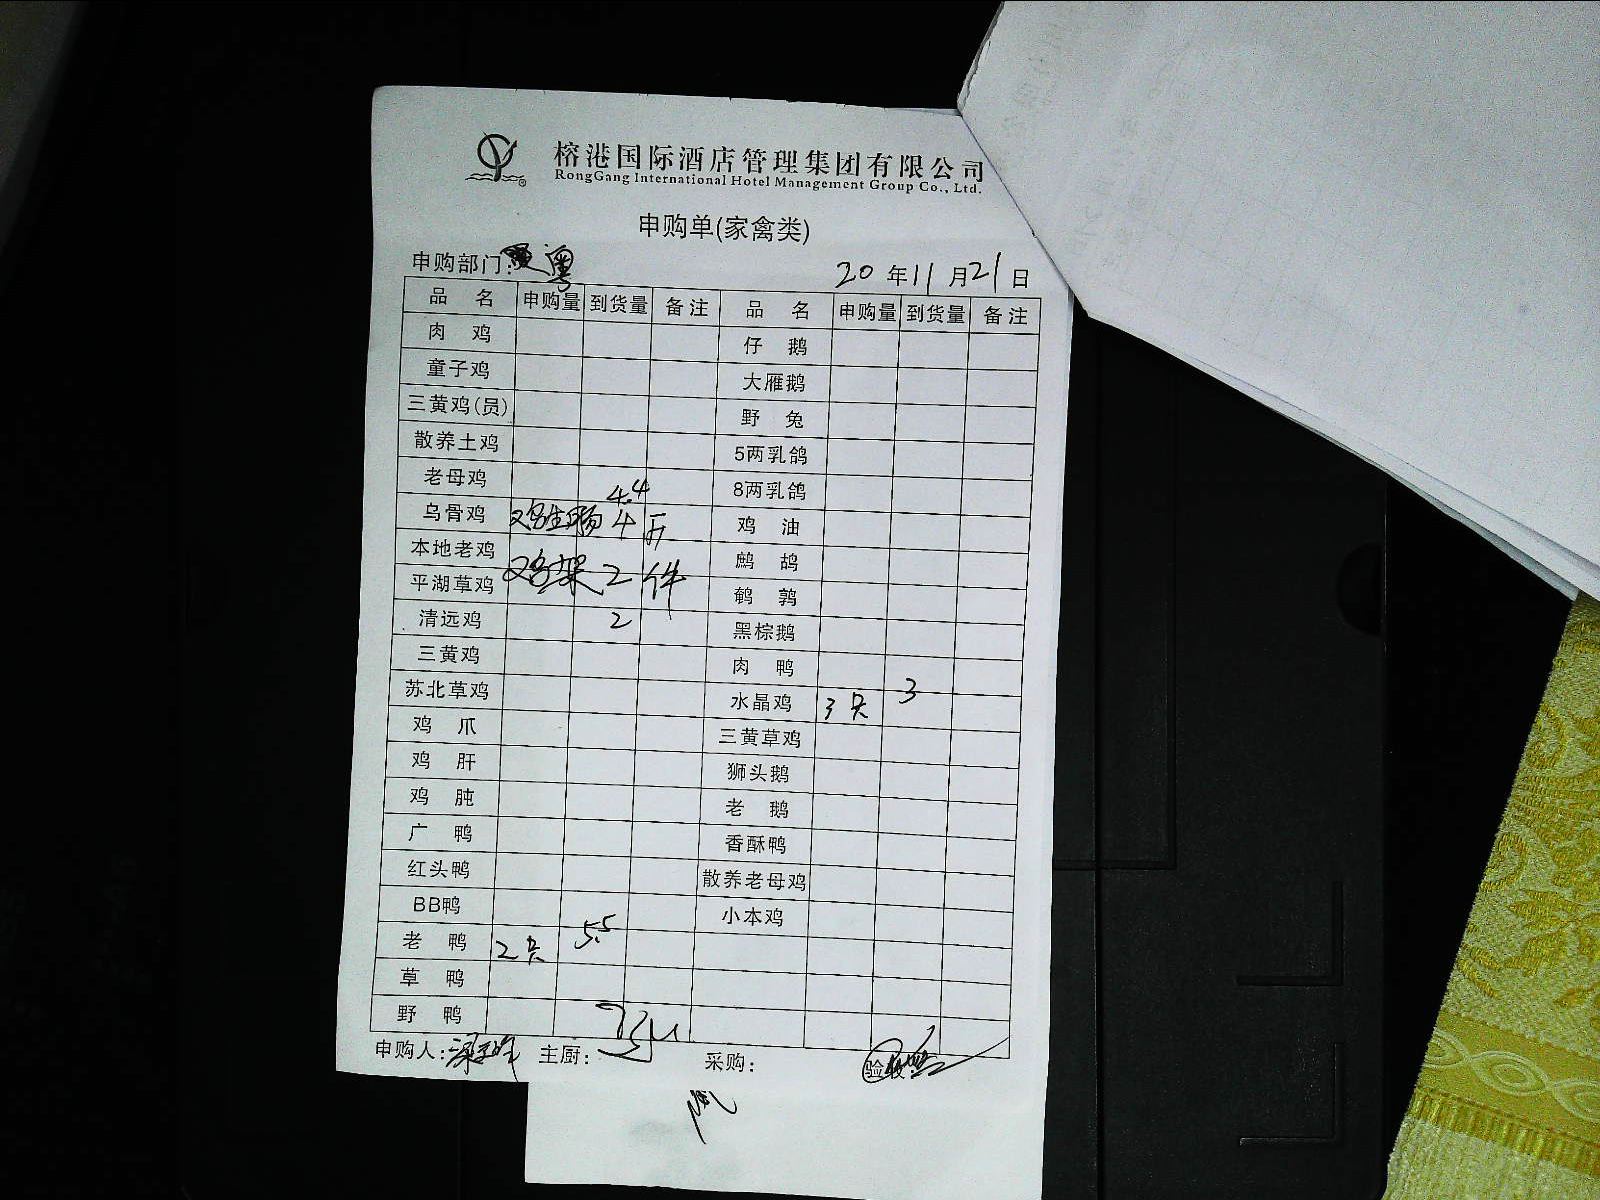 榕港国际酒店管理集团有限公司
RongGang International Hotel Management Group Co., Ltd.
申购单(家禽类)
申购部门: 粤 20年11月21日
品名 申购量 到货量 备注 品名 申购量 到货量 备注
肉鸡 仔鹅
童子鸡 大雁鹅
三黄鸡(员) 野兔
散养土鸡 5两乳鸽
老母鸡 4.4 8两乳鸽
乌骨鸡 鸡生肠 4斤 鸡油
本地老鸡 鸡架 2件 鹧鸪
平湖草鸡 鹌鹑
清远鸡 2 黑棕鹅
三黄鸡 肉鸭
苏北草鸡 水晶鸡 3只 3
鸡爪 三黄草鸡
鸡肝 狮头鹅
鸡肫 老鹅
广鸭 香酥鸭
红头鸭 散养老母鸡
BB鸭 小本鸡
老鸭 2只 5.5
草鸭
野鸭
申购人: 主厨: 采购: 验收: